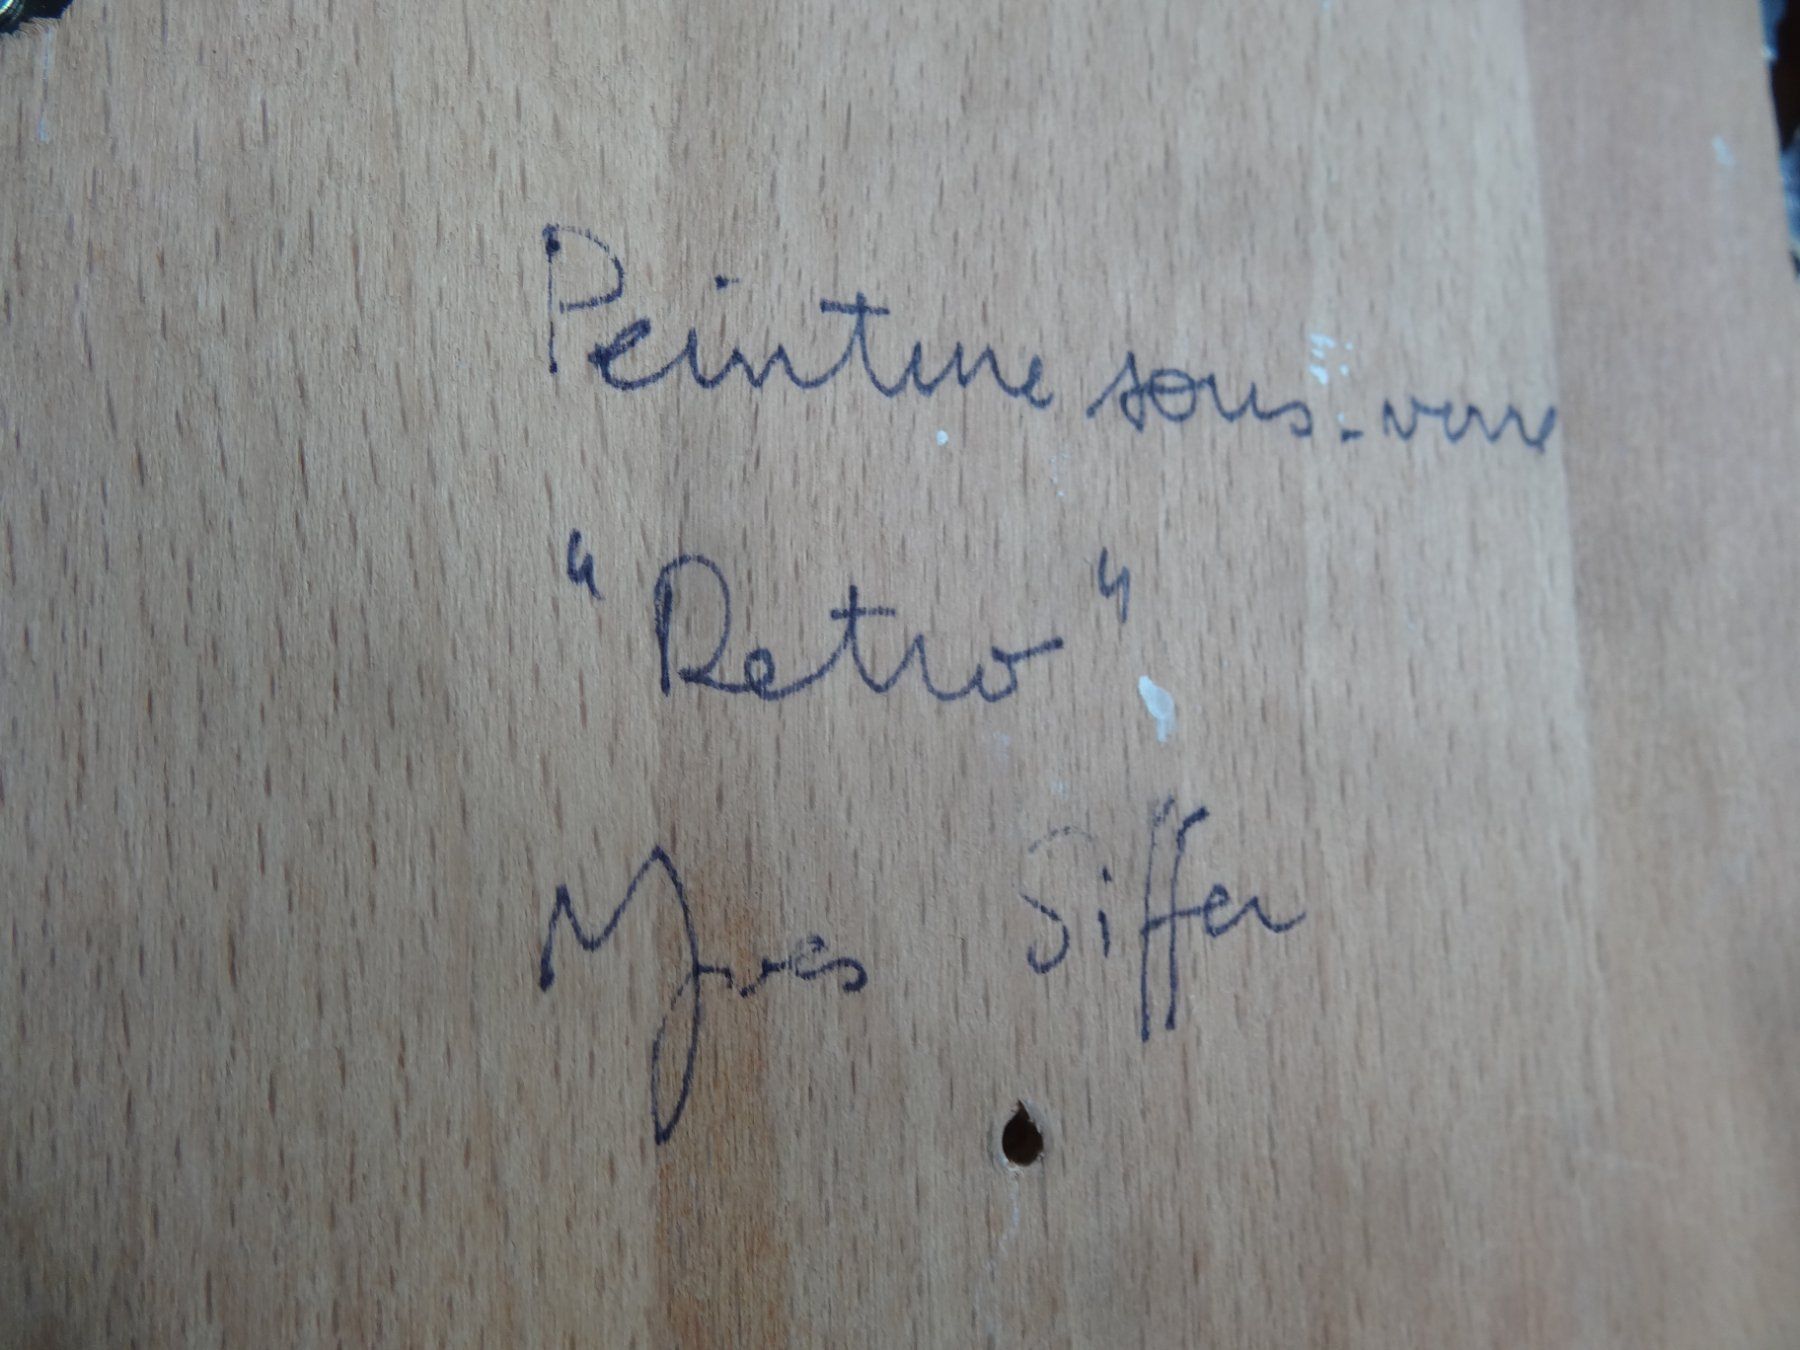 Peinture sous-verre
"Retro"
Yves Siffer